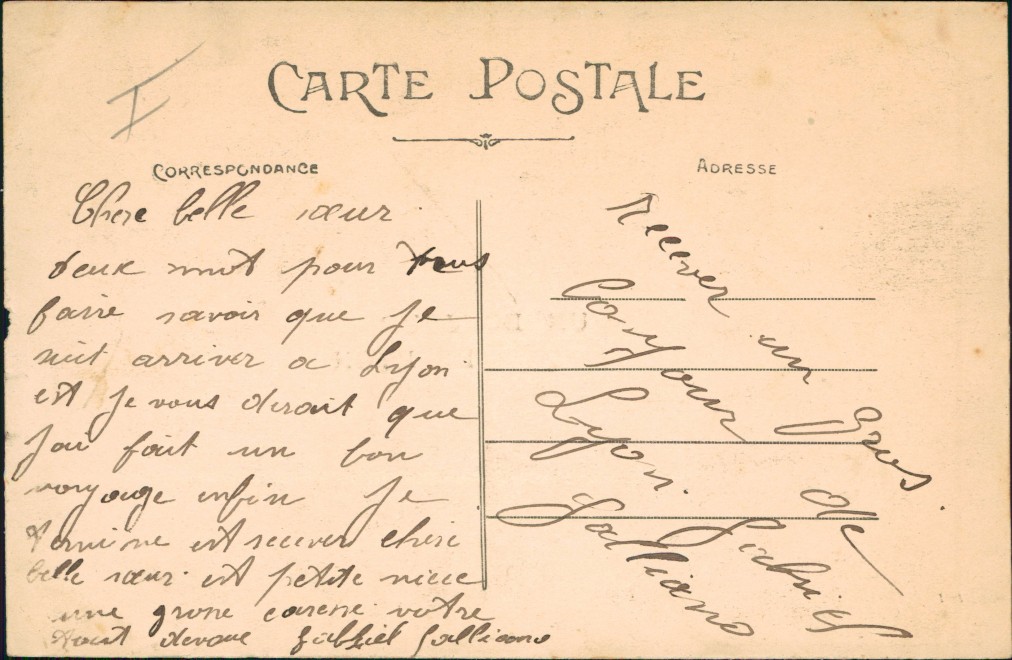 CARTE POSTALE
CORRESPONDANCE
ADRESSE
Chere belle sœur
deux mot pour vous
faire savoir que Je
suit arriver a Lyon
est Je vous dirait que
Jai fait un bon
voyage enfin Je
termine est recever chere
belle sœur est petite niece
une grose carese votre
tout devoue Gabriel Galliano
Recever un Gros
Bonjour de
Lyon. Gabriel
Galliano